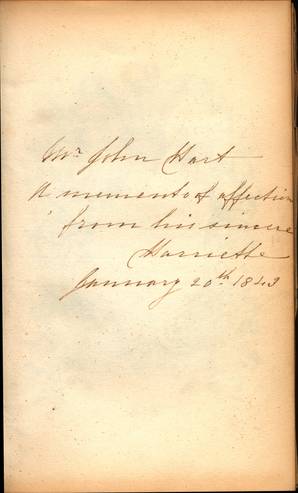 Mr John Hart
A memento of affection
from his sincere
Harriette
January 20th 1843